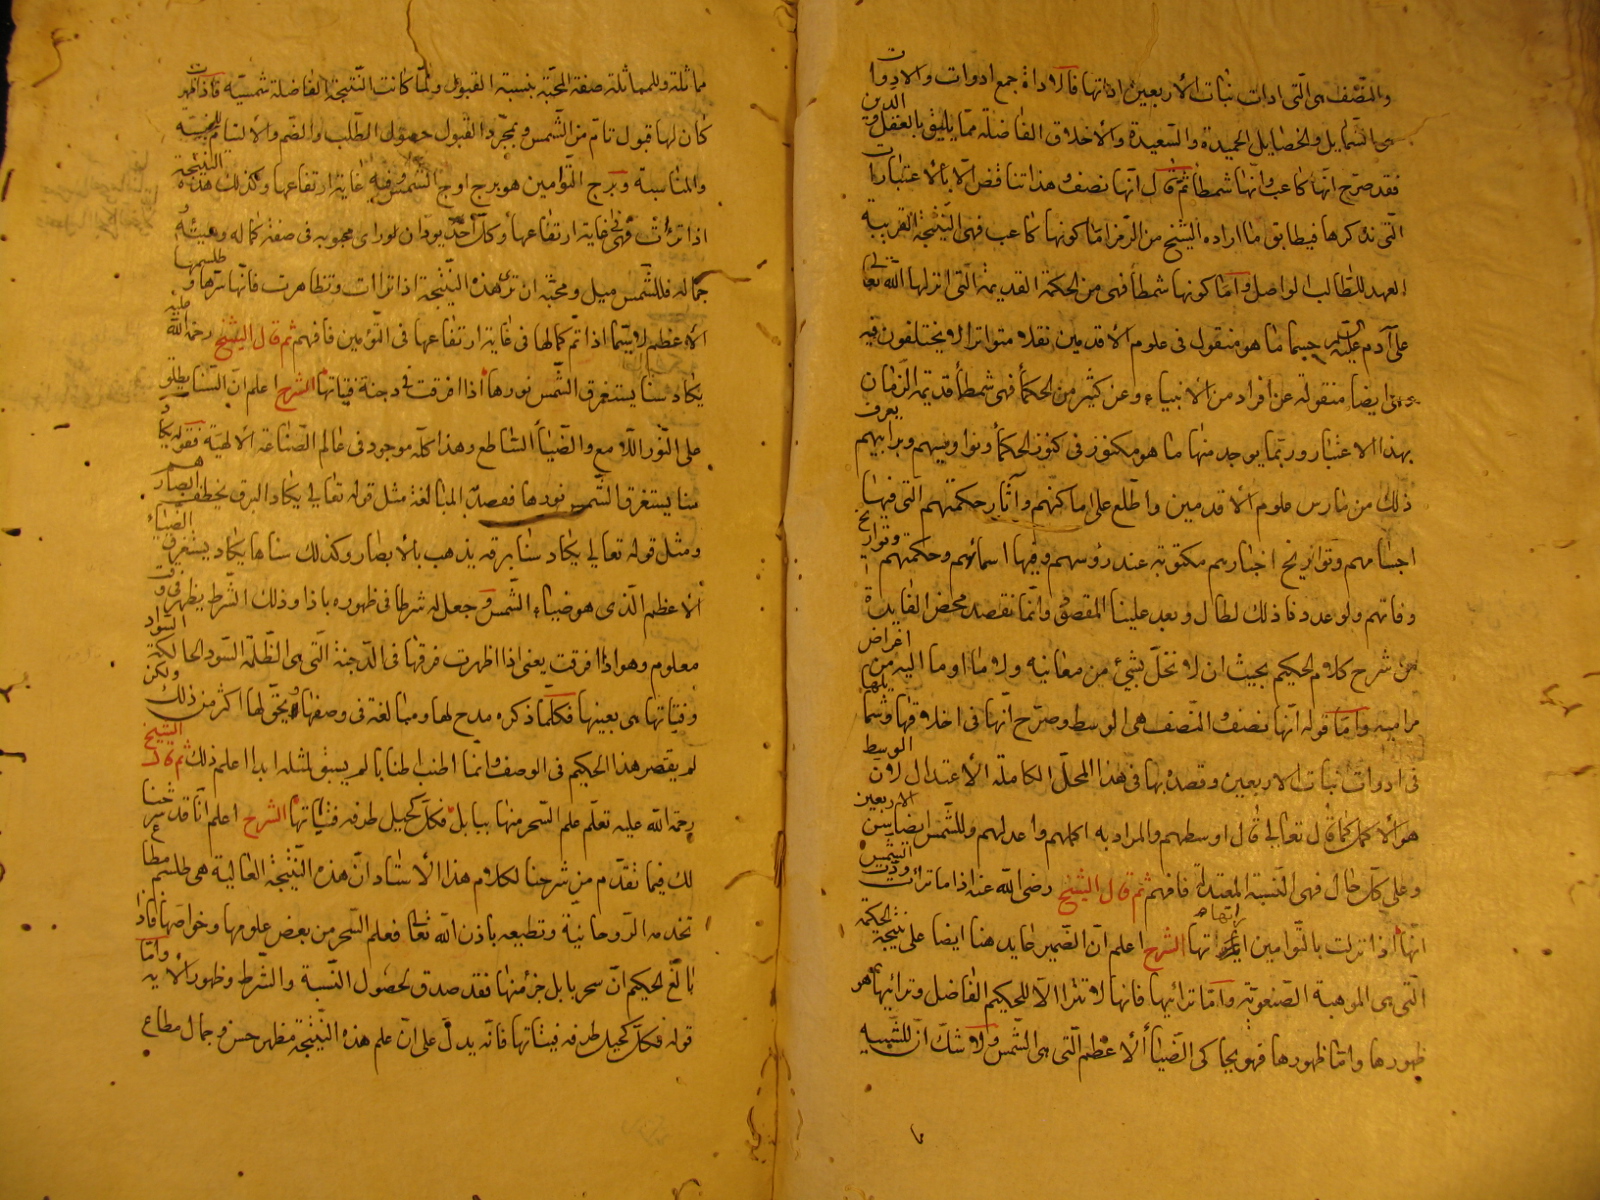 والنصف هى التى ادات بنات الأربعين اداتها فالاداة جمع ادوات والادوات
هى الشمايل والخصايل الحميدة والسعيدة والأخلاق الفاضلة مما يليق بالعقل والدين
فقد صرح انها كاعب وانها شمطأ ثم قال انها نصف وهذا تناقض الا بالاعتبارات
التى نذكرها فيطابق ما اراده الشيخ من الرمز اما كونها كاعب فهى النتيجة القريبة
العهد للطالب الواصل واما كونها شمطأ فهى من الحكمة القديمة التى انزلها الله تعالى
على آدم عليه السلم حسبما ما هو منقول فى علوم الأقدمين نقلا متواترا لا يختلفون فيه
وهى ايضا منقولة عن افراد من الأنبياء وعن كثير من الحكمأ فهى شمطأ قديمة الزمان
بهذا الاعتبار وربما يوجد منها ما هو مكنوز فى كنوز الحكمأ ونواويسهم وبرابيهم يعرف
ذلك من مارس علوم الأقدمين واطلع على اماكنهم وآثار حكمتهم التى فيها
اجسامهم وتواريخ اخبارهم مكتوبة عند رؤسهم وفيها اسمائهم وحكمتهم وتواريخ
وفاتهم ولو عددنا ذلك لطال وبعد علينا المقصود وانما نقصد محض الفايدة
من شرح كلام الحكيم بحيث ان لا نخل بشئ من معانيه ولا ما اوما اليه من اغراض
مراميه واما قوله انها نصف والنصف هى الوسط وصرح انها فى اخلاقها وشمايلها
فى ادوات بنات الاربعين وقصد بها فى هذا المحل الكاملة الأعتدال لان الوسط
هو الأكمل كما قال تعالى قال اوسطهم والمراد به اكملهم واعدلهم وللشمس ايضا سن الاربعين
وعلى كل حال فهى النسبة المعتدلة فافهم ثم قال الشيخ رضى الله عنه اذا ما ترأت الشمس ودت
انها اذا نزلت بالتوامين تراتها الشرح اعلم ان الضمير عايد هنا ايضا على نتيجة الحكمة
التى هى الموهبة الصنعوية واما ترائيها فانها لا تترا الا للحكيم الفاضل وترائيها هو
ظهورها واما ظهورها فهو يحاكى الضيأ الأعظم التى هى الشمس ولا شك ان للشبيه
مماثلة وللمماثلة صفة المحبة بنسبة القبول ولما كانت النتيجة الفاضلة شمسية فاذا ظهرت
كان لها قبول تام من الشمس وبمجرد القبول حصول الطلب والضم والألتئام للجنسية
والمناسبة وبرج التوامين هو برج اوج الشمس وفيه غاية ارتفاعها وكذلك هذه النتيجة
اذا ترأت فهى فى غاية ارتفاعها وكل احد يود ان لو راى محبوبه فى صفة كماله وهيئة
جماله فللشمس ميل ومحبة ان ترى هذه النتيجة اذا تراات وتظاهرت فانها سرها وطلسمها
الأعظم لا سيما اذا تم كمالها فى غاية ارتفاعها فى التومين فافهم ثم قال الشيخ رحمة الله عليه
يكاد سنا يستغرق الشمس نورها اذا افرقت فى دجنة فيناتها الشرح اعلم ان السنا يطلق
على النور اللامع والضيأ الساطع وهذا كله موجود فى عالم الصناعة الألهية فقوله يكاد
سنا يستغرق الشمس نورها فقصد المبالغة مثل قوله تعالى يكاد البرق يخطف ابصارهم
ومثل قوله تعالى يكاد سنا برقه يذهب بالأبصار وكذلك سناها يكاد يستغرق الضياء
الأعظم الذى هو ضياء الشمس وجعل له شرطا فى ظهوره باذا وذلك الشرط يظهر فى وقت
معلوم وهو اذا افرقت يعنى اذا اظهرت فرقها فى الدجنة التى هى الظلمة السود الحالكة السواد
وفيناتها هى بعينها فكلما ذكره مدح لها ومبالغة فى وصفها ويحق لها اكثر من ذلك ولكن
لم يقصر هذا الحكيم فى الوصف وانما اطنب اطنابا لم يسبق لمثله ابدا اعلم ذلك ثم قال الشيخ
رحمة الله عليه تعلم علم السحر منها ببابل فكل كحيل طرفه فيناتها الشرح اعلم انا قد شرحنا
لك فيما تقدم من شرحنا لكلام هذا الأستاد ان هذه النتيجة العالية هى طلسم مطاع
تخدمه الروحانية وتطيعه باذن الله تعالى فعلم السحر من بعض علومها وخواصها فاذا
بالغ الحكيم ان سحر بابل جزء منها فقد صدق لحصول النسبة والشرط وظهور الأية واما
قوله فكل كحيل طرفه فيناتها فانه يدل على ان علم هذه النتيجة مظهر حسن وجمال مطاع